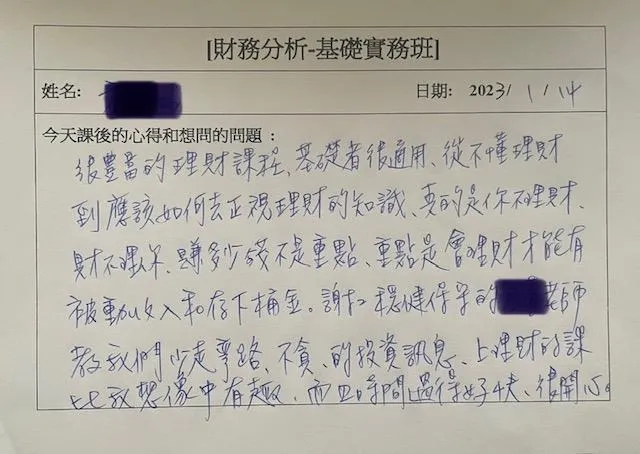 [財務分析-基礎實務班]
姓名:
日期: 2023/1/14
今天課後的心得和想問的問題：
很豐富的理財課程、基礎者很適用、從不懂理財
到應該如何去正視理財的知識、真的是你不理財、
財不理你、賺多少錢不是重點、重點是會理財才能有
被動收入和存下桶金。謝謝穩健保守的老師
教我們少走彎路、不貪、的投資訊息、上理財的課
比我想像中有趣、而且時間過得好快、很開心。